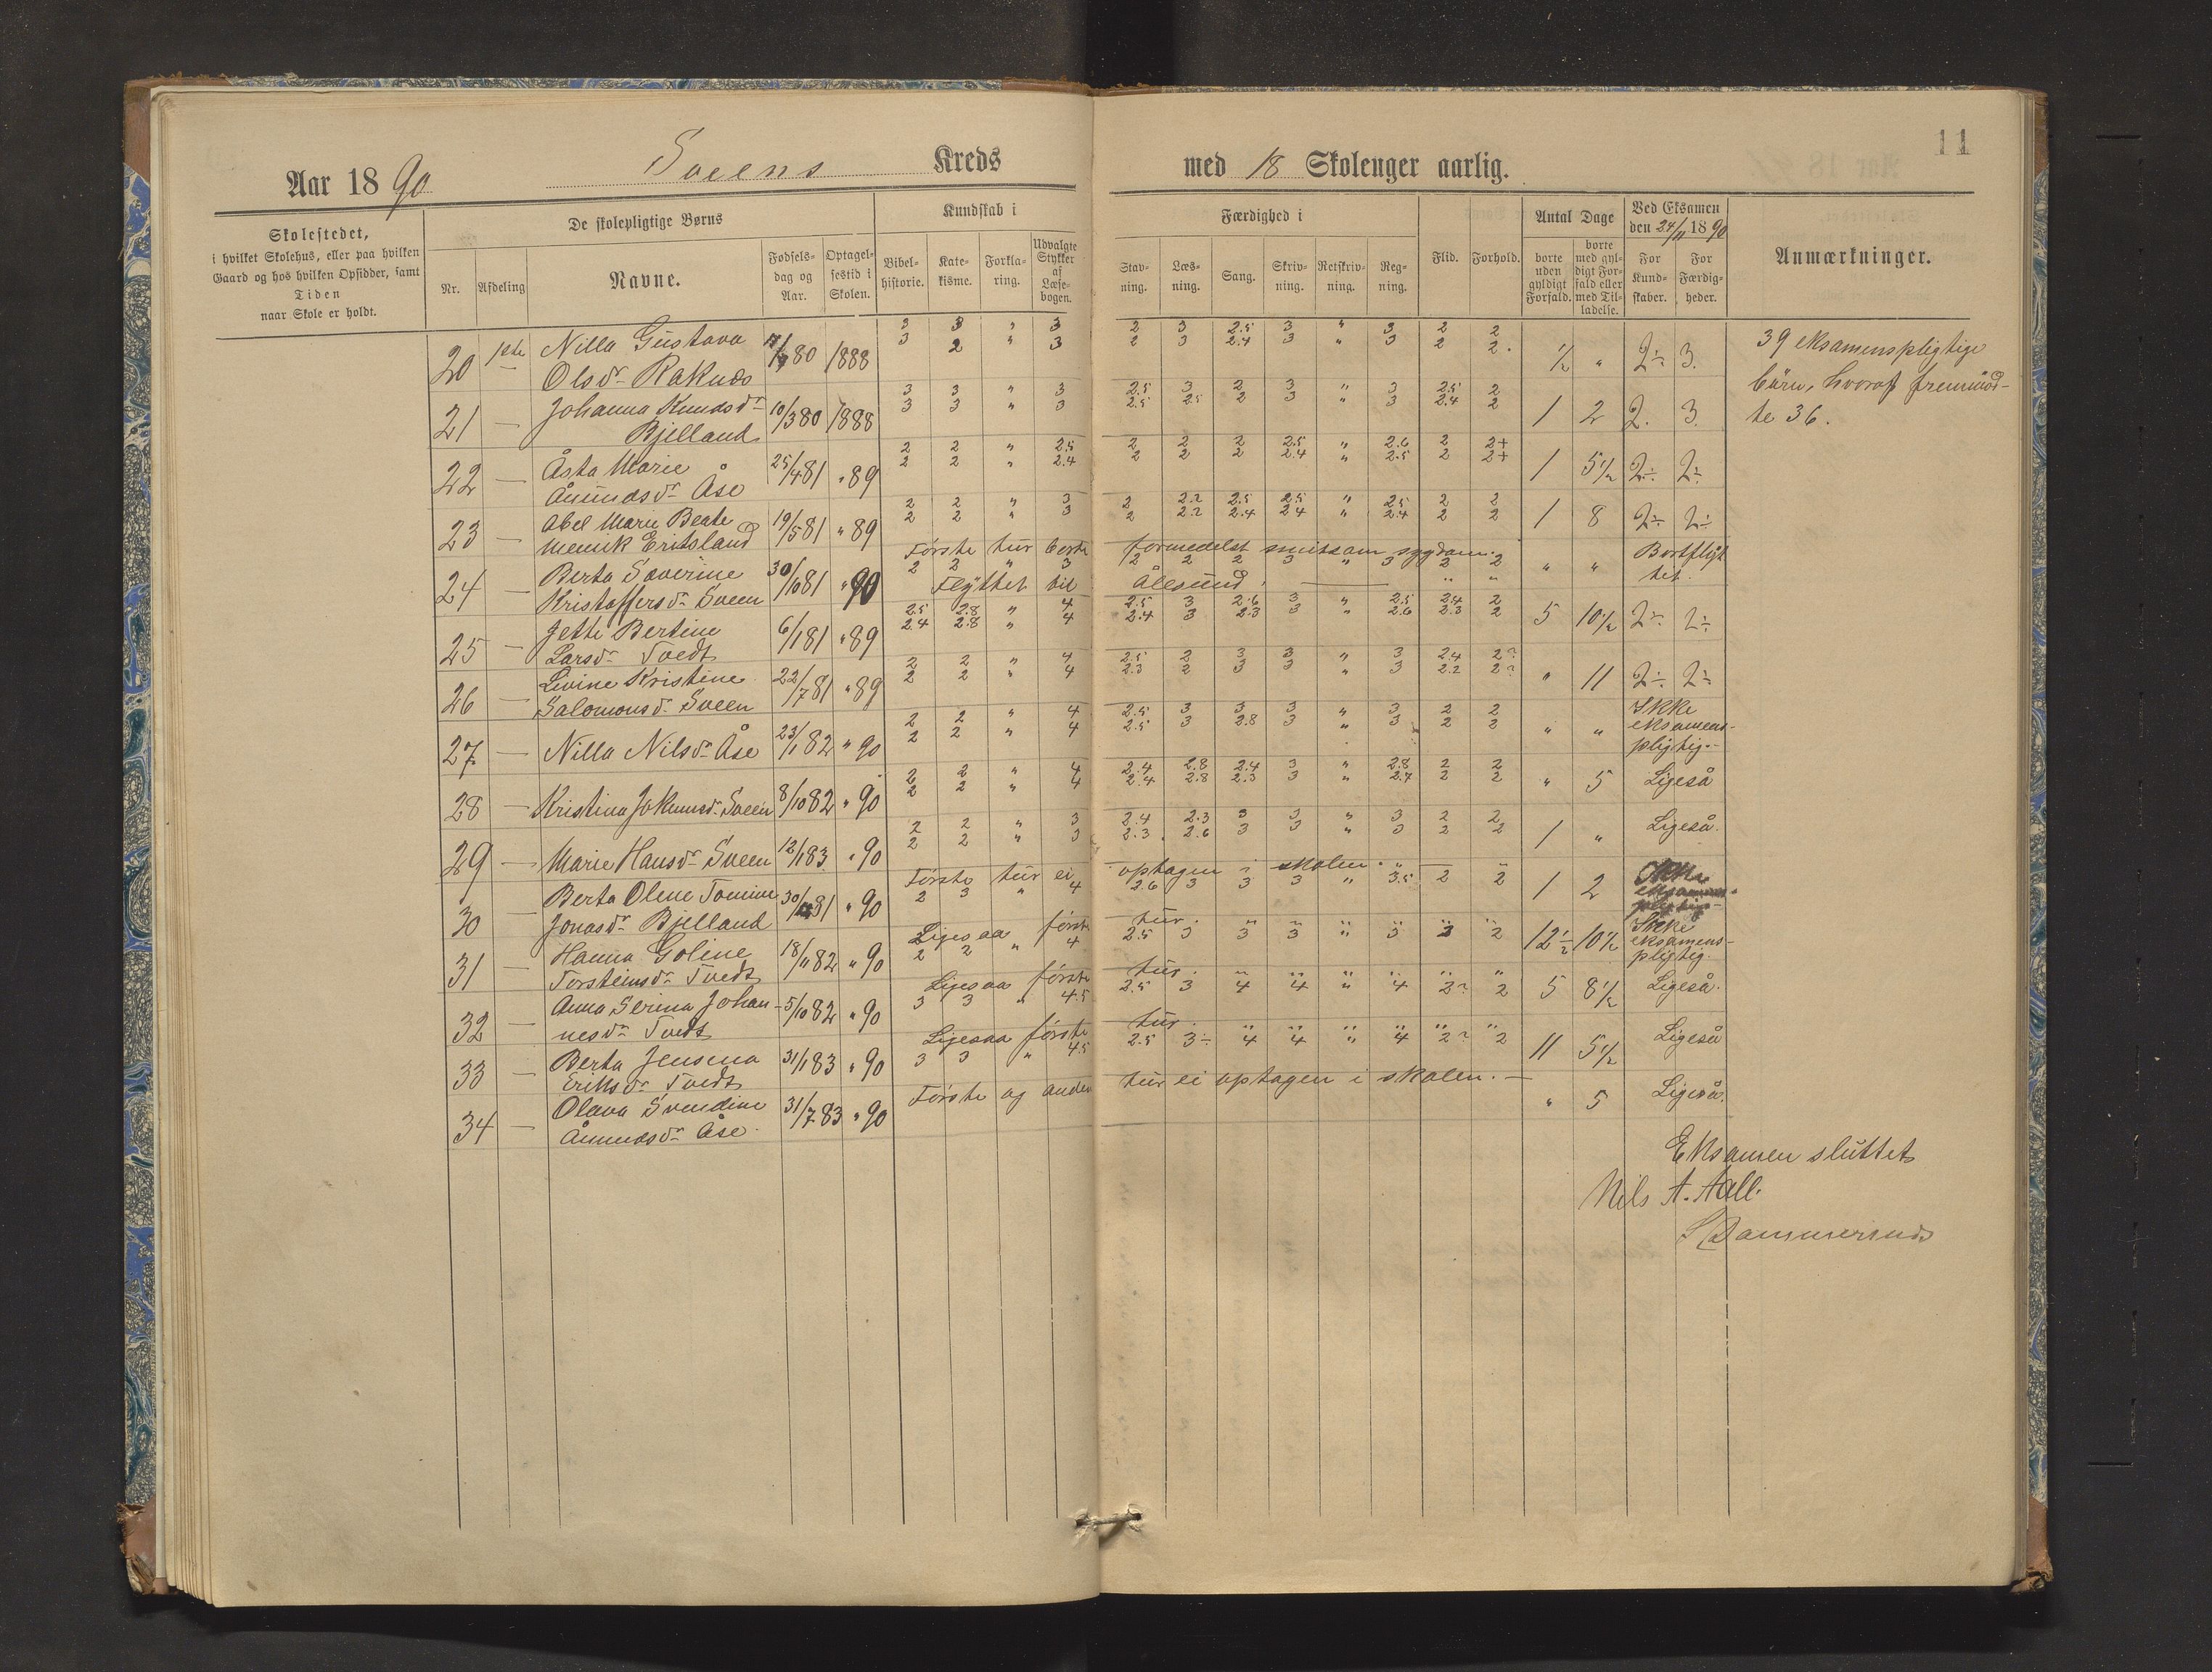 11
Aar 1890 Sveens Kreds med 18 Skolenger aarlig.
Skolestedet,
i hvilket Skolehus, eller paa hvilken
Gaard og hos hvilken Opsidder, samt
Tiden
naar Skole er holdt.
De skolepligtige Børns
Nr. Afdeling Navne. Fødsels-dag og Aar. Optagel-sestid i Skolen.
Kundskab i
Bibel-historie. Kate-kisme. Forkla-ring. Udvalgte Stykker af Læse-bogen.
Færdighed i
Stav-ning. Læs-ning. Sang. Skriv-ning. Retskriv-ning. Reg-ning.
Flid. Forhold.
Antal Dage
borte uden gyldigt Forfald. borte med gyl-digt For-fald eller med Til-ladelse.
Ved Eksamen
den 24/11 1890
For Kund-skaber. For Færdig-heder.
Anmærkninger.
3 3 " 3 2 3 2.5 3 " 3 2 2
20 1ste Nilla Gustava 80 1888 3 2 " 3 2 3 2.4 3 " 3 2 2. 1/2 " 2÷ 3.
Olsdr Raknes
39 eksamenspligtige
börn, hvoraf fremmöd-
te 36.
3 3 " 3 2.5 3 2 3 " 3 2.5 2
21 — Johanna Knudsdr 10/3 80 1888 3 3 " 3 2.5 2.5 2 3 " 3 2.4 2 1 2 2. 3.
Bjelland
2 2 " 2.5 2 2 2 2.5 " 2.6 2 2+
22 — Åsta Marie 25/4 81 " 89 2 2 " 2.4 2 2 2 2.4 " 2.5 2 2+ 1 5 1/2 2÷ 2÷
Åmundsdr Åse
2 2 " 3 2 2.2 2.5 2.5 " 2.5 2 2
23 — Abel Marie Beate 19/5 81 " 89 2 2 " 3 2 2.2 2.4 2.4 " 2.4 2 2 1 8 2÷ 2÷
Menik Eritsland
Förste tur borte formedelst smitsom sygdom.
24 — Berta Saverine 30/10 81 " 90 2 2 " 3 2 2 2 3 " 3 2 2 " " Bortflyt-
Kristoffersdr Sveen Flyttet til Ålesund. — " " tet.
2.5 2.8 " 4 2.5 3 2.6 3 " 2.5 2.4 2
25 — Jette Bertine 6/1 81 " 89 2.4 2.8 " 4 2.4 3 2.3 3 " 2.6 2.3 2 5 10 1/2 2÷ 2÷
Larsdr Tvedt
2 2 " 4 2.5 2 3 3 " 3 2.4 2?
26 — Livine Kristine 22/7 81 " 89 2 2 " 4 2.3 2 3 3 " 3 2.2 2? " 11 2÷ 2÷
Salomonsdr Sveen
2 2 " 4 2.5 3 3 3 " 3 2 2
27 — Nilla Nilsdr Åse 23/1 82 " 90 2 2 " 4 2.5 3 2.8 3 " 3 2 2 " " Ikke
eksamens-
pligtig.-
2 2 " 4 2.4 2.8 2.4 3 " 2.8 2 2
28 — Kristina Jokumsdr Sveen 8/10 82 " 90 2 2 " 4 2.4 2.8 2.3 3 " 2.7 2 2 " 5 Ligeså
2 2 " 3 2.4 2.3 3 3 " 3 2 2
29 — Marie Hansdr Sveen 12/1 83 " 90 2 2 " 3 2.3 2.6 3 3 " 3 2 2 1 " Ligeså.
Förste tur ei optagen i skolen.
30 — Berta Oline Tomine 30/ 81 " 90 2 3 " 4 2.6 3 3 3 " 3.5 2 2 1 2
Jonasdr Bjelland
Ligesaa förste tur.
31 — Hanna Goline 18/11 82 " 90 2 2 " 4 2.5 3 3 3 " 3 2 2 12 1/2 10 1/2 Ikke
Torsteinsdr Tvedt eksamens-
pligtig.
Ligesaa förste tur.
32 — Anna Serina Johan- 5/10 82 " 90 3 3 " 4.5 2.5 3 4 4 " 4 2? 2 5 8 1/2 Ligeså.
nesdr Tvedt
Ligesaa förste tur.
33 — Berta Jensena 31/1 83 " 90 3 3 " 4.5 2.5 3÷ 4 4 " 4 2? 2 11 5 1/2 Ligeså
Eriksdr Tvedt
Förste og anden tur ei optagen i skolen. —
34 — Olava Svendine 31/7 83 " 90 " 5 Ligeså.
Åmundsdr Åse.
Eksamen sluttet
Nils A. Aall.